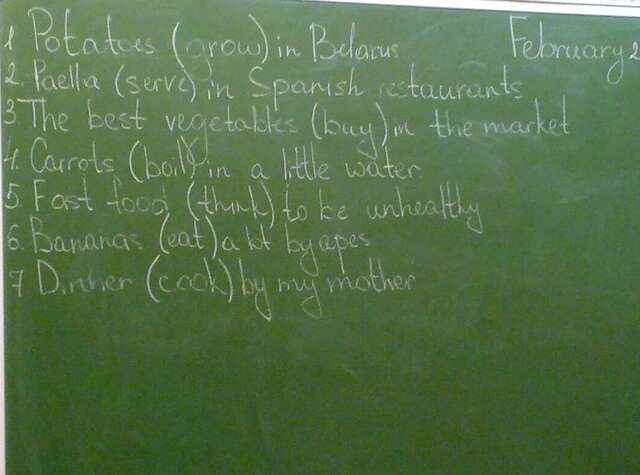 1 Potatoes (grow) in Belarus February 2
2. Paella (serve) in Spanish restaurants
3. The best vegetables (buy) in the market
4. Carrots (boil) in a little water
5. Fast food (think) to be unhealthy
6. Bananas (eat) a lot by apes
7 Dinner (cook) by my mother